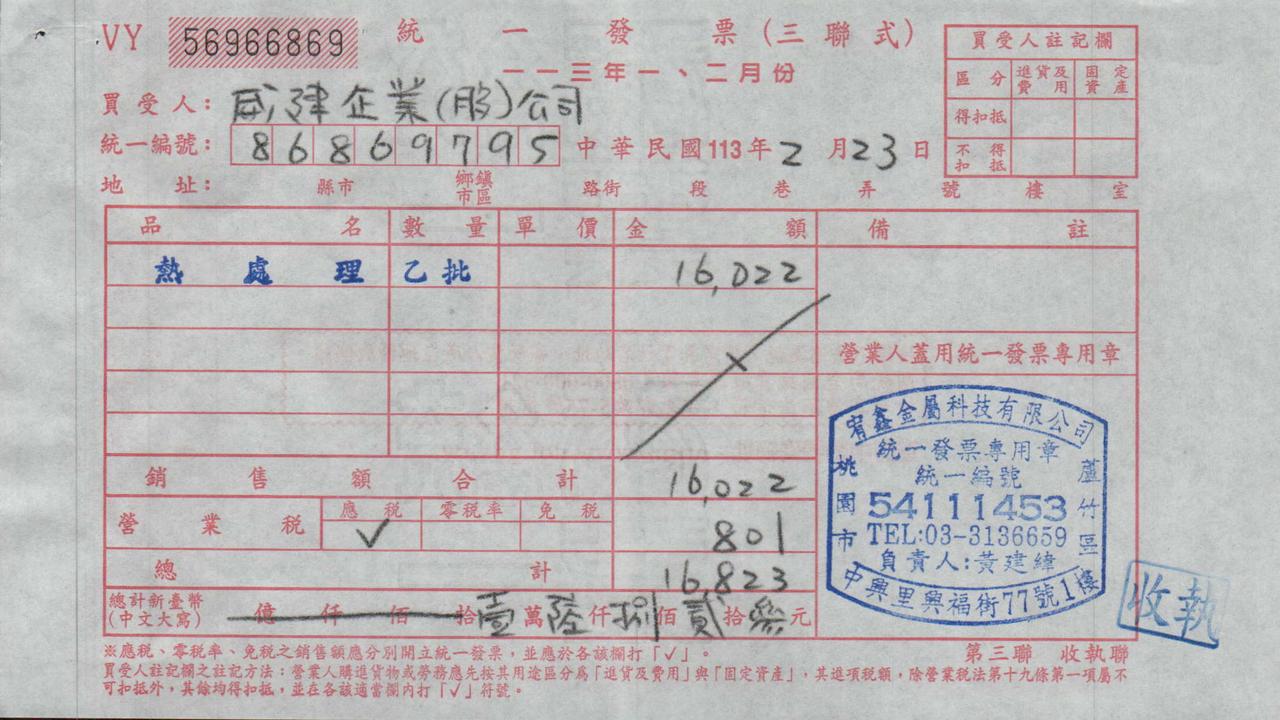 VY 56966869 統一發票(三聯式)
一一三年一、二月份
買受人註記欄
區分 進貨及費用 固定資產
得扣抵
不得扣抵
買受人: 威津企業(股)公司
統一編號: 86869795 中華民國113年2月23日
地址: 縣市 鄉鎮市區 路街 段 巷 弄 號 樓 室
品名 數量 單價 金額 備註
熱處理 乙批 16,022
營業人蓋用統一發票專用章
銷售額合計 16,022
營業稅 應稅 零稅率 免稅 801
✓
總計 16,823
總計新臺幣(中文大寫) 億仟佰拾壹萬陸仟捌佰貳拾參元
宥鑫金屬科技有限公司
統一發票專用章
統一編號
54111453
TEL:03-3136659
負責人:黃建緯
桃園市蘆竹區
中興里興福街77號1樓
收執
※應稅、零稅率、免稅之銷售額應分別開立統一發票,並應於各該欄打「✓」。
第三聯 收執聯
買受人註記欄之註記方法:營業人購進貨物或勞務應先按其用途區分為「進貨及費用」與「固定資產」,其進項稅額,除營業稅法第十九條第一項屬不
可扣抵外,其餘均得扣抵,並在各該適當欄內打「✓」符號。